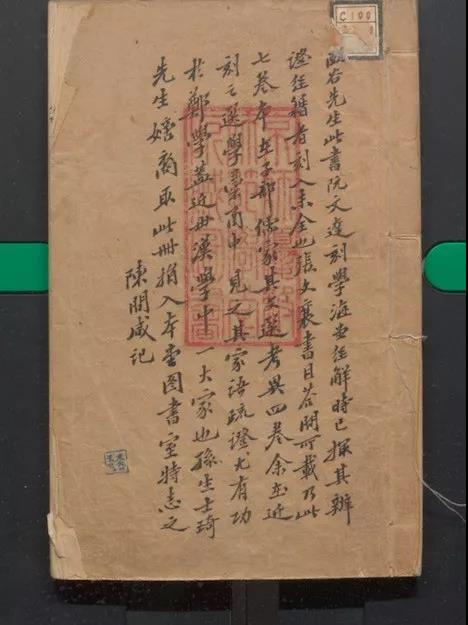 C100
頤谷先生此書阮文達刻學海堂經解時已擇其辦
證經籍者刻入未全也張文襄書目答問所載乃此
七卷本在子部儒家其文選考異四卷余在近
刻之選學叢書中見之其家語疏證尤有功
於鄭學蓋近世漢學中一大家也孫生士琦
先生嫡裔取此冊捐入本堂圖書室特志之
陳開咸記